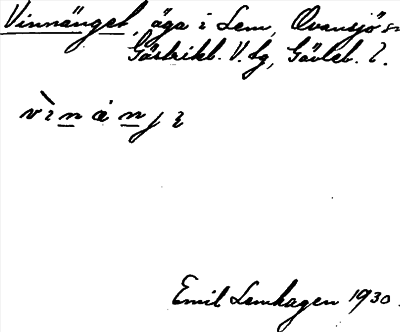 Vinnänget, äga i Lem, Ovansjö sn
Gästrikl. V. tg, Gävleb. l.
Emil Lemhagen 1930.